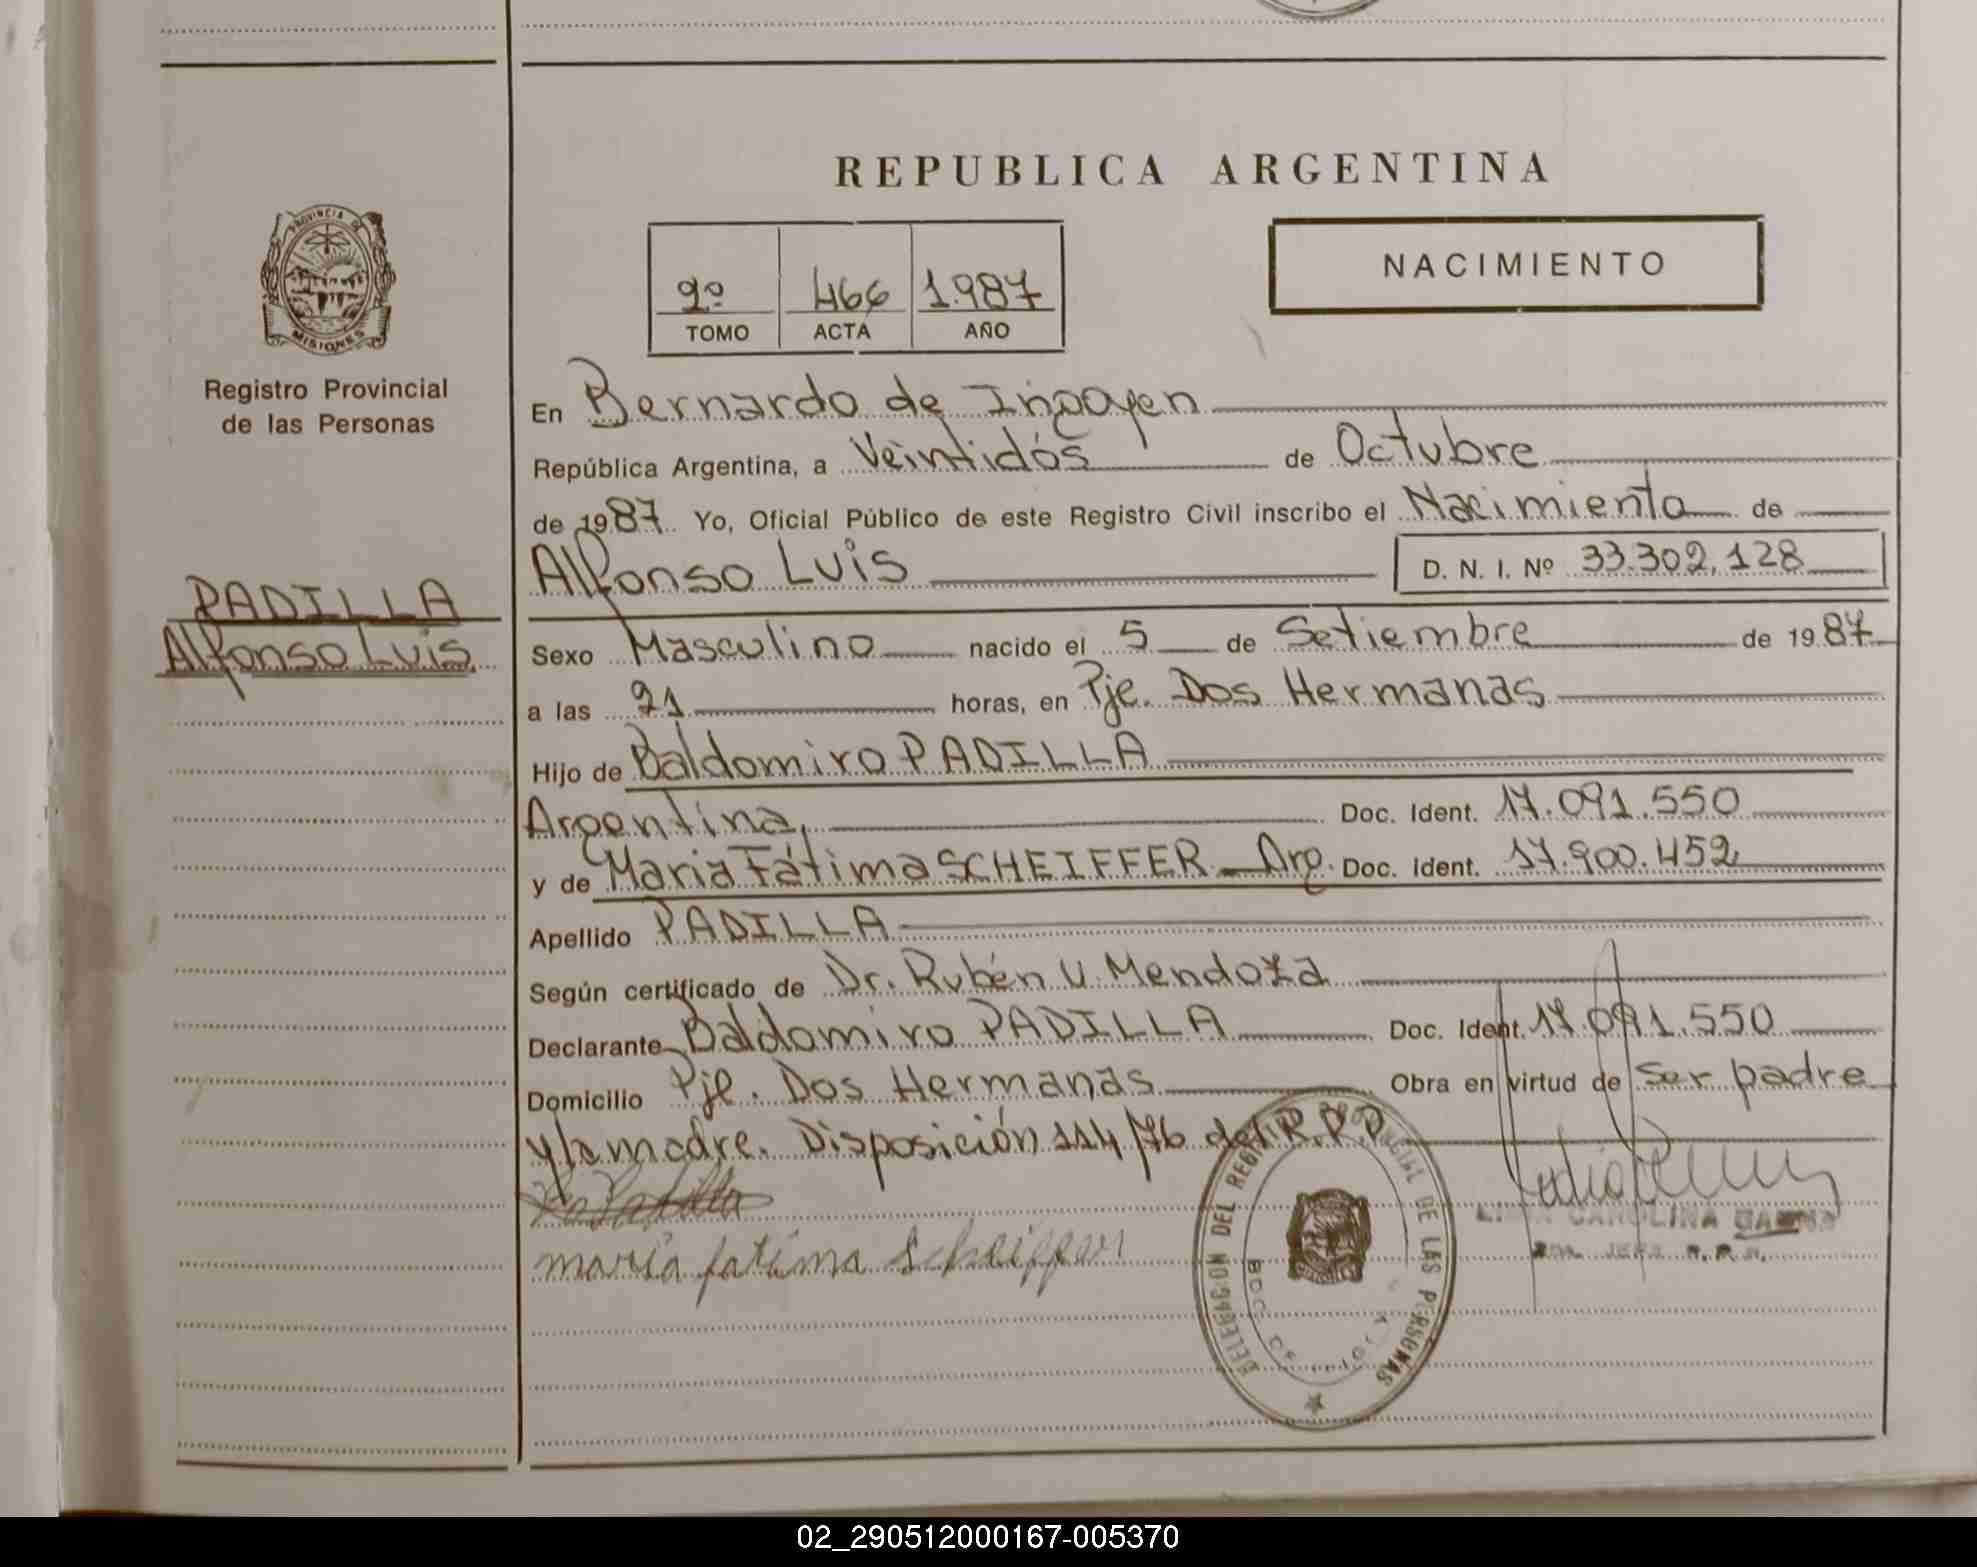 REPUBLICA ARGENTINA
PROVINCIA DE
MISIONES
Registro Provincial
de las Personas
2º 466 1.987
TOMO ACTA AÑO
NACIMIENTO
PADILLA
Alfonso Luis
En Bernardo de Irigoyen
República Argentina, a Veintidós de Octubre
de 1987 Yo, Oficial Público de este Registro Civil inscribo el Nacimiento de
Alfonso Luis D. N. I. Nº 33.302.128
Sexo Masculino nacido el 5 de Setiembre de 1987
a las 21 horas, en Pje. Dos Hermanas
Hijo de Baldomiro PADILLA
Argentina, Doc. Ident. 17.091.550
y de Maria Fátima SCHEIFFER Arg. Doc. Ident. 17.900.452
Apellido PADILLA
Según certificado de Dr. Rubén V. Mendoza
Declarante Baldomiro PADILLA Doc. Ident. 17.091.550
Domicilio Pje. Dos Hermanas Obra en virtud de ser padre
y la madre. Disposición 114/76 del R.P.P.
maria fatima Scheiffer
CAROLINA
DELEGACION DEL REGISTRO PROVINCIAL DE LAS PERSONAS
02_290512000167-005370